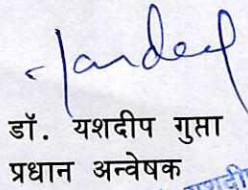 डॉ. यशदीप गुप्ता
प्रधान अन्वेषक